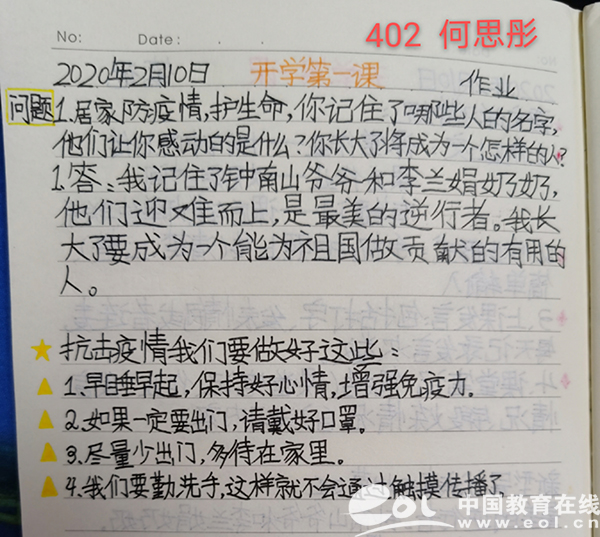 402 何思彤
No: Date: . .
2020年2月10日 开学第一课 作业
问题 1.居家防疫情,护生命,你记住了哪些人的名字,
他们让你感动的是什么?你长大了将成为一个怎样的人?
1.答:我记住了钟南山爷爷和李兰娟奶奶,
他们迎难而上,是最美的逆行者。我长
大了要成为一个能为祖国做贡献的有用的
人。
★抗击疫情我们要做好这些:
▲1.早睡早起,保持好心情,增强免疫力。
▲2.如果一定要出门,请戴好口罩。
▲3.尽量少出门,多待在家里。
▲4.我们要勤洗手,这样就不会通过触摸传播了
eol 中国教育在线
www.eol.cn